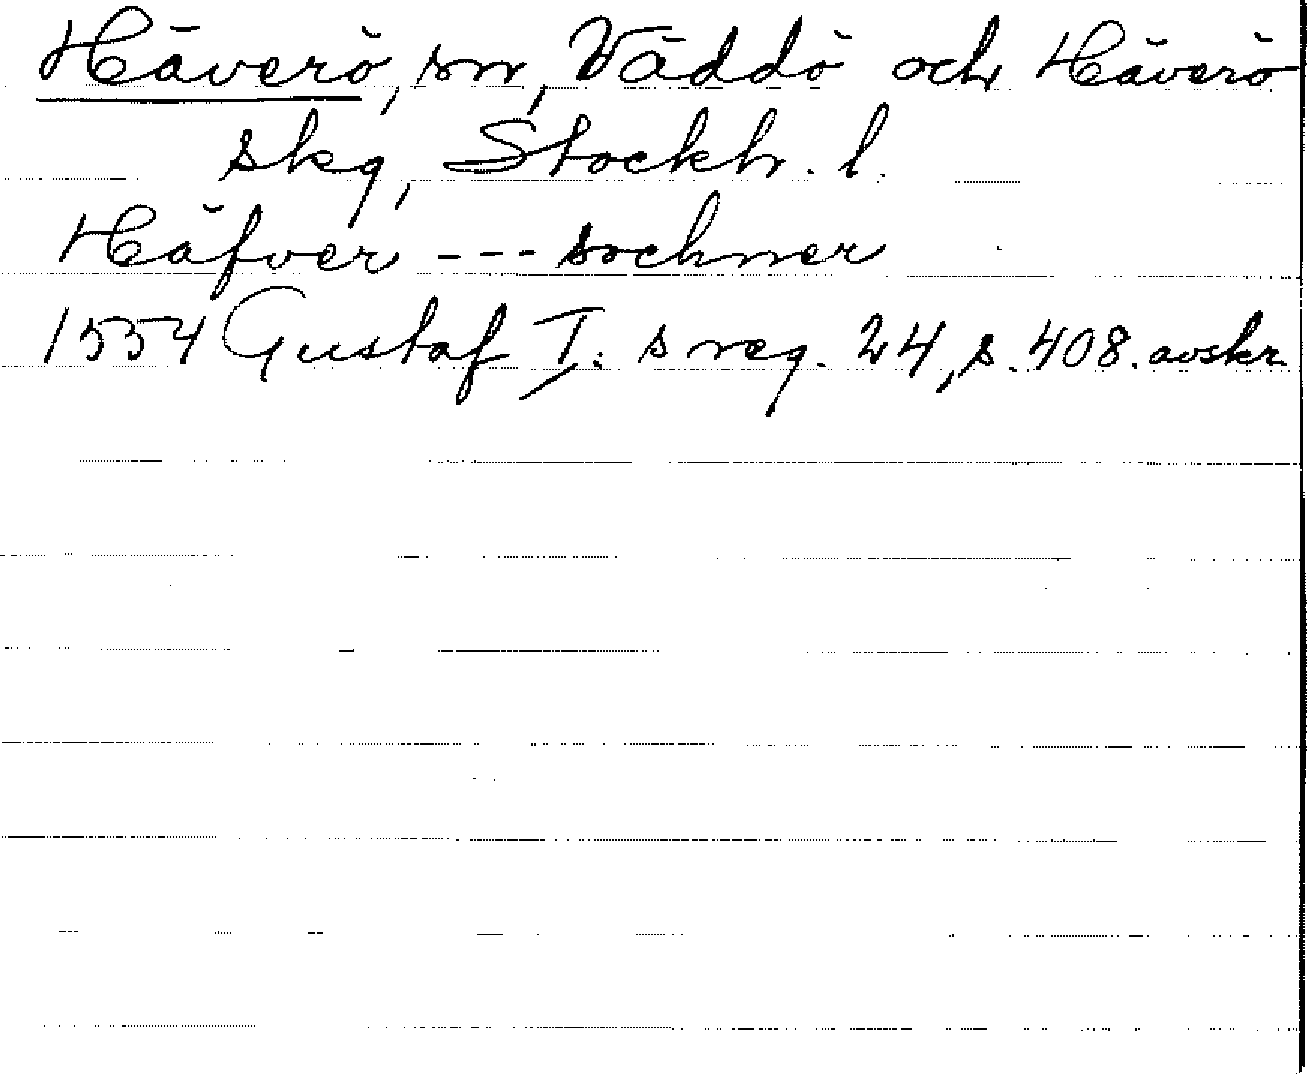 Häverö, sn, Väddö och Häverö
skg, Stockh. l.
Häfver --- sochner
1554 Gustaf I:s reg. 24, s. 408. avskr.